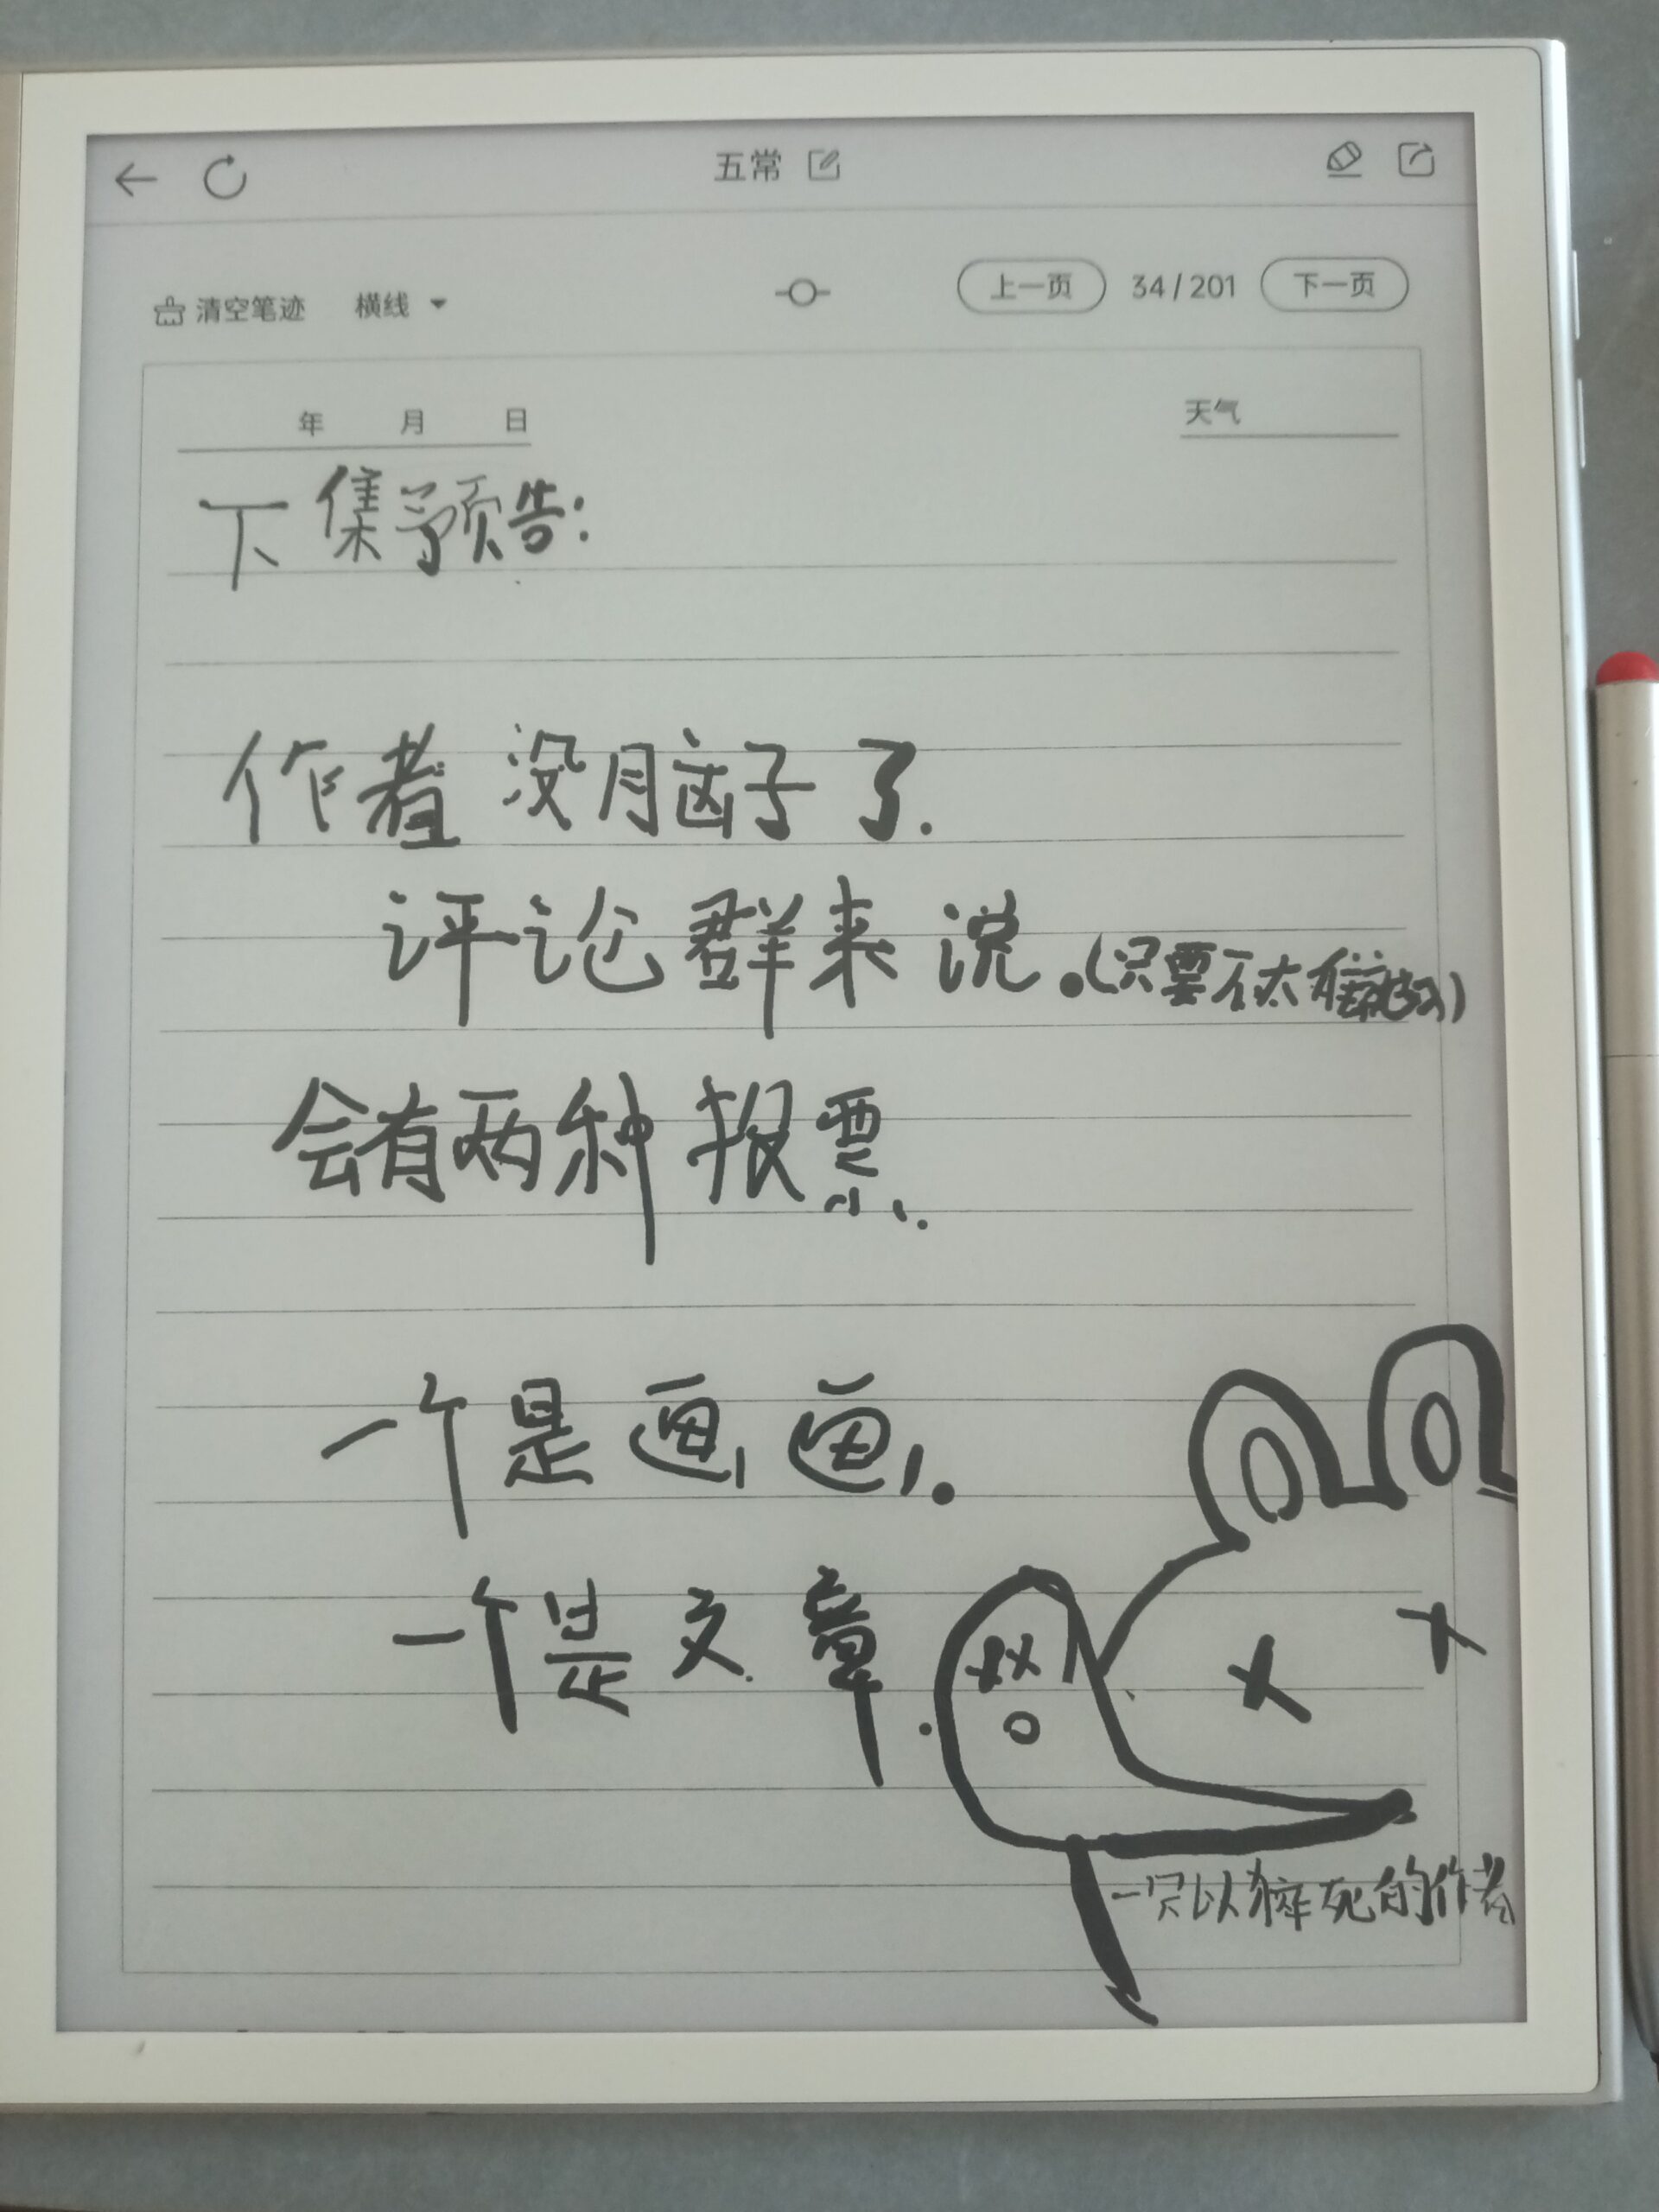 五常
清空笔迹 横线 上一页 34/201 下一页
年 月 日 天气
下集预告:
作者没脑子了.
评论群来说.(只要不太
会有两种报票.
一个是画画.
一个是文章.
一只以猝死的作者